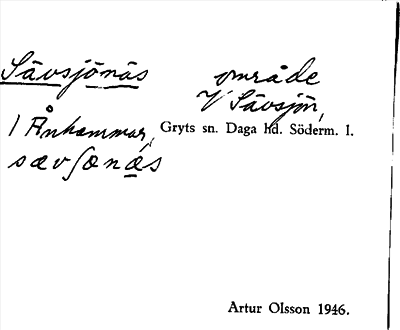 Sävsjönäs område
V Sävsjön,
1 Ånhammar, Gryts sn. Daga hd. Söderm. l.
sævʃønä́s
Artur Olsson 1946.